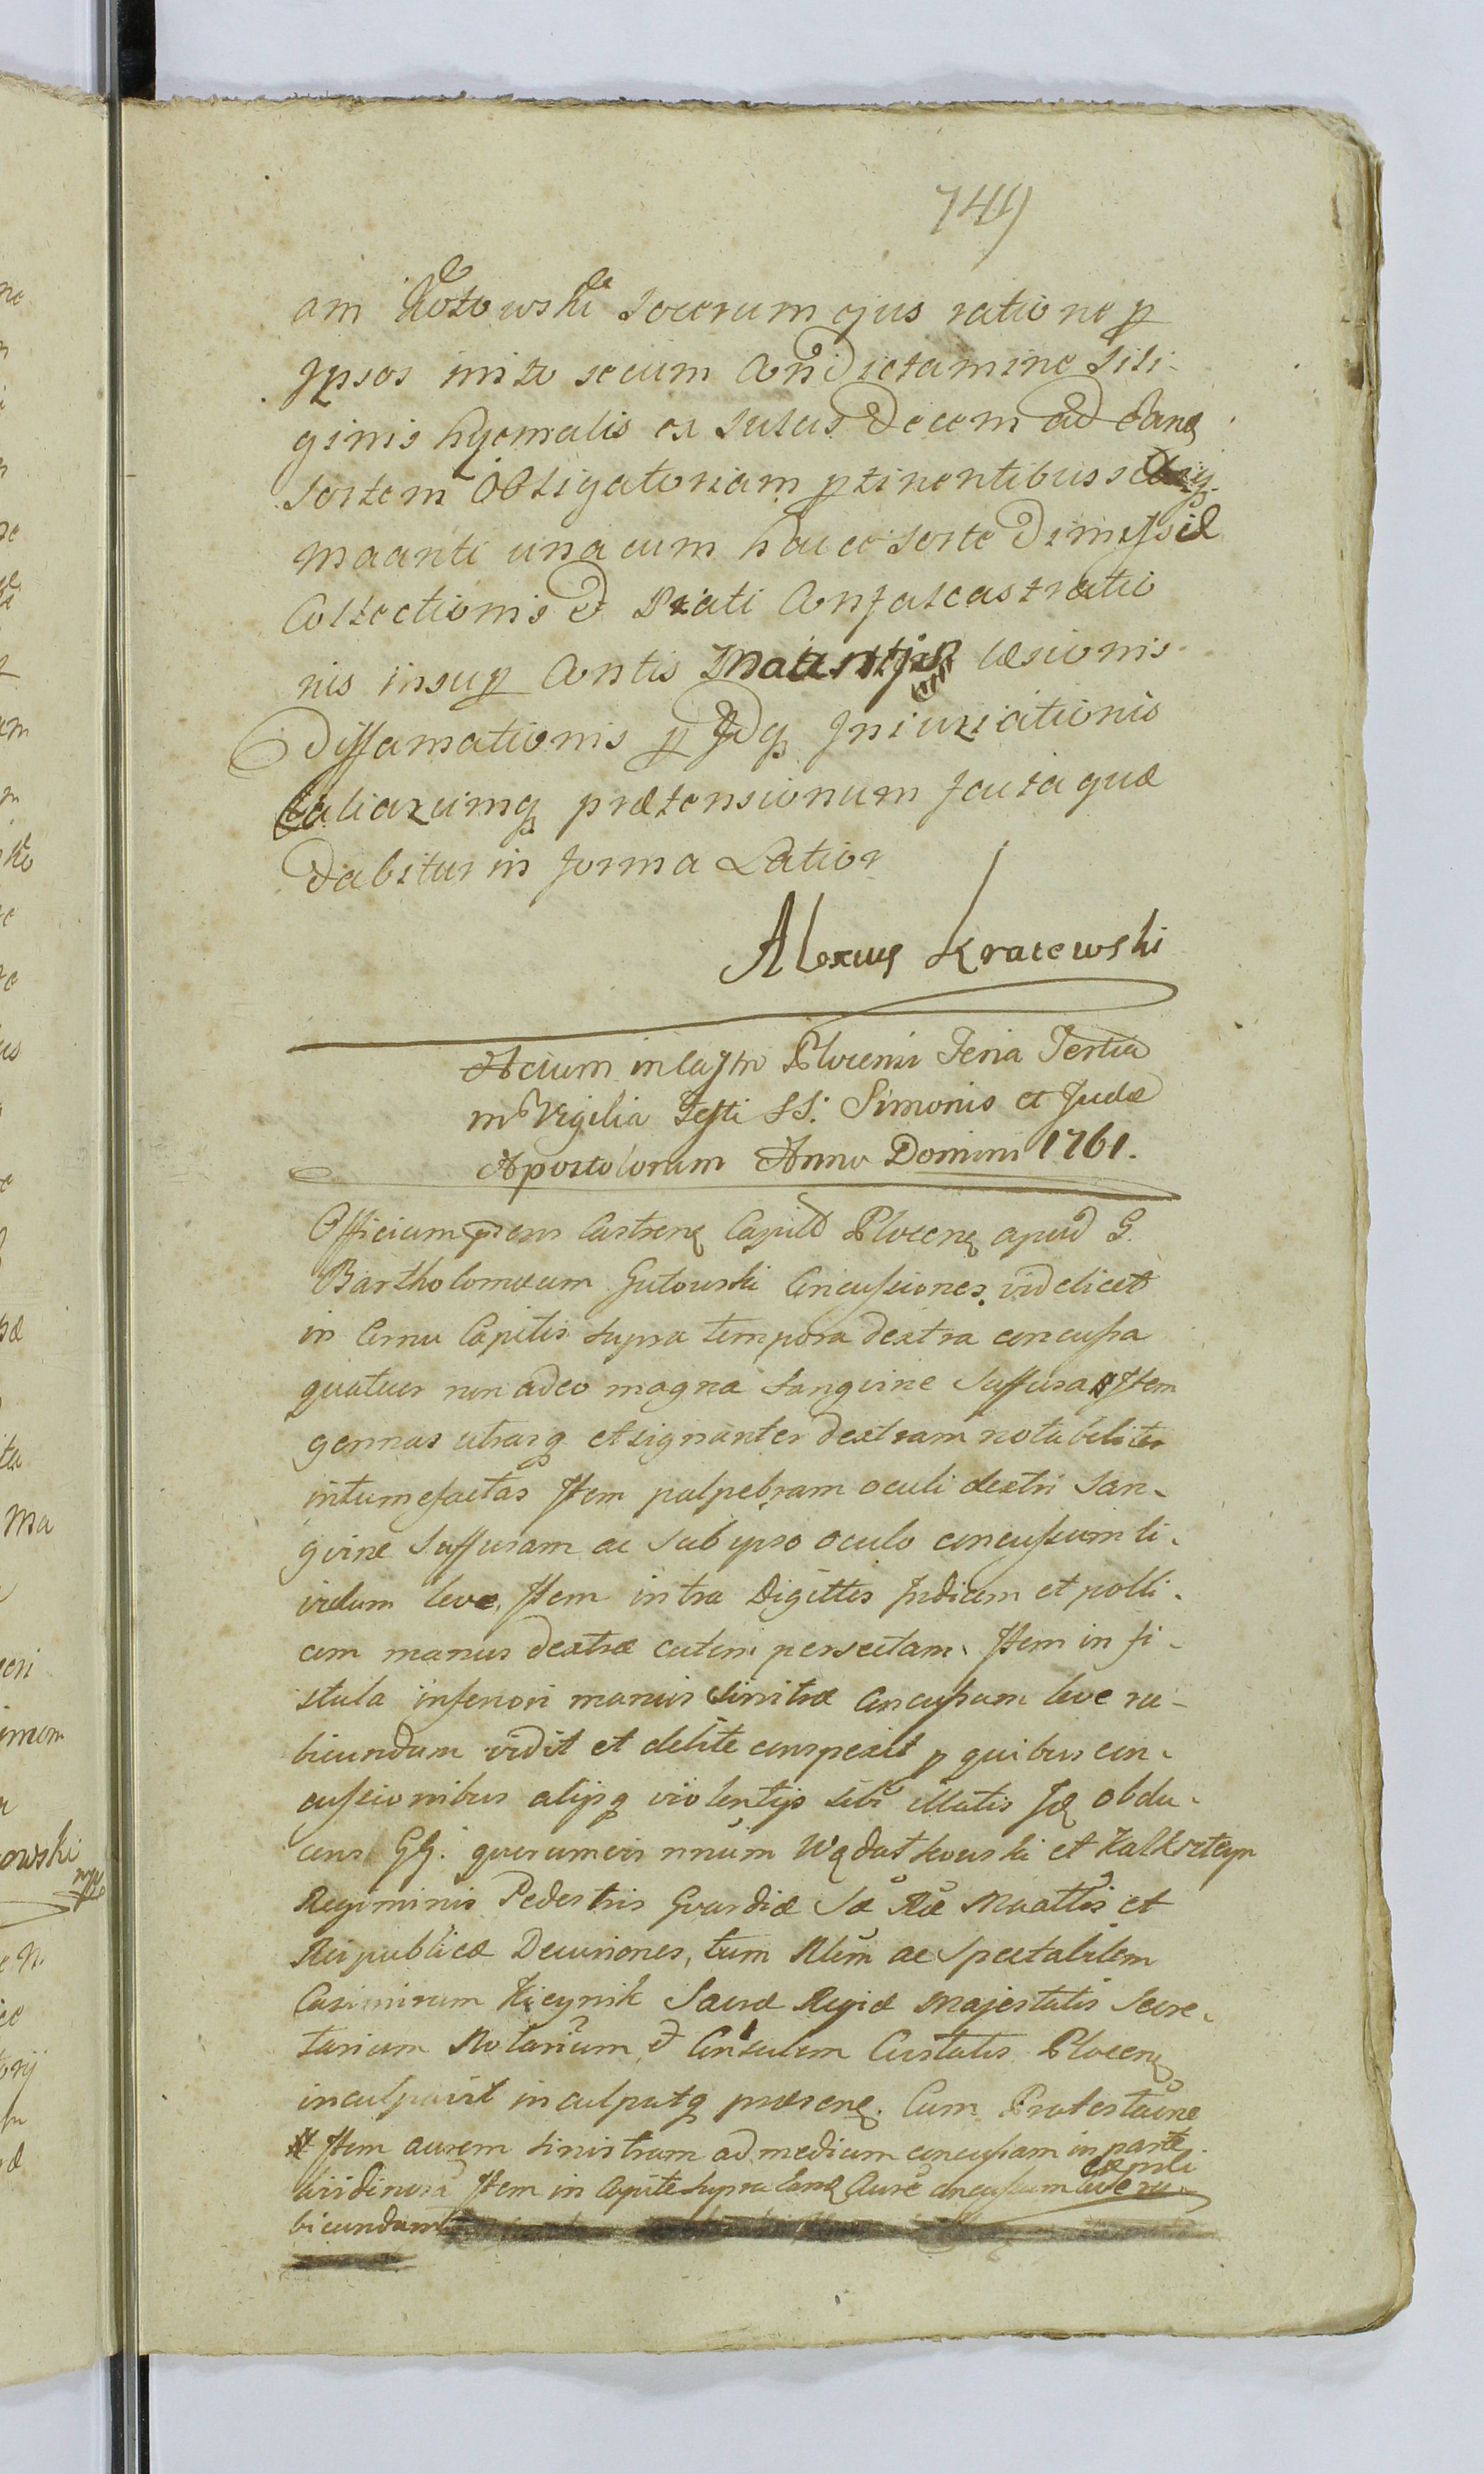 749
am Kotowski Socerum ejus ratione p
Ipsos inito secum Condictamine Sili-
ginis hyemalis ex Sulcis Decem ad eanq
Sortem Obligatoriam ptinentibus
maanti una cum hacce Sorte Dimissi &
Collectionis & Prati Confalcastratio
nis insup Contis læsionis
Diffamationis p Idq Iniuriationis
aliarumq prætensionum facta quæ
dabitur in forma Latior
Alexius Kraiewski
Actum in Castro Plocensi Feria Tertia
in Vigilia Festi SS: Simonis et Judæ
Apostolorum Anno Domini 1761.
Officium præns Castrenq Capitle Plocenq apud G.
Bartholomæum Gutowski Concussiones videlicet
in Cornu Capitis supra tempora dextra concussa
quatuor non adeo magna Sangvine Suffusa # Item
gennas utrasq et signanter dextram notabiliter
intumefactas Item palpebram oculi dextri San-
gvine Suffusam ac Sub ipso oculo concussum li-
vidum leve, Item intra Digittos Indicem et polli-
cem manus dextræ cutem persectam. Item in fi-
stula inferiori manus Sinistræ Concussum leve ru-
bicundum vidit et debite conspexit p quibus con-
cussionibus alijsq violentijs sibi illatis Idq obdu-
cens GG. quorumvis nnúm Wądatkowski et Kalksteyn
Regiminis Pedestris Gvardiæ Sæ Ræ Maattis et
Reipublicæ Decuriones, tum Nlem ac Spectabilem
Casimirum Kicynik Sacræ Regiæ Majestatis Secre-
tarium Notarium & Consulem Civitatis Plocenq
inculpavit inculpatq præsenq. Cum Protestaõne
# Item aurem sinistram ad medium concussam in parte
lividinosa Item in Capite supra eanq Aurē concussum leve ru-
bicundum